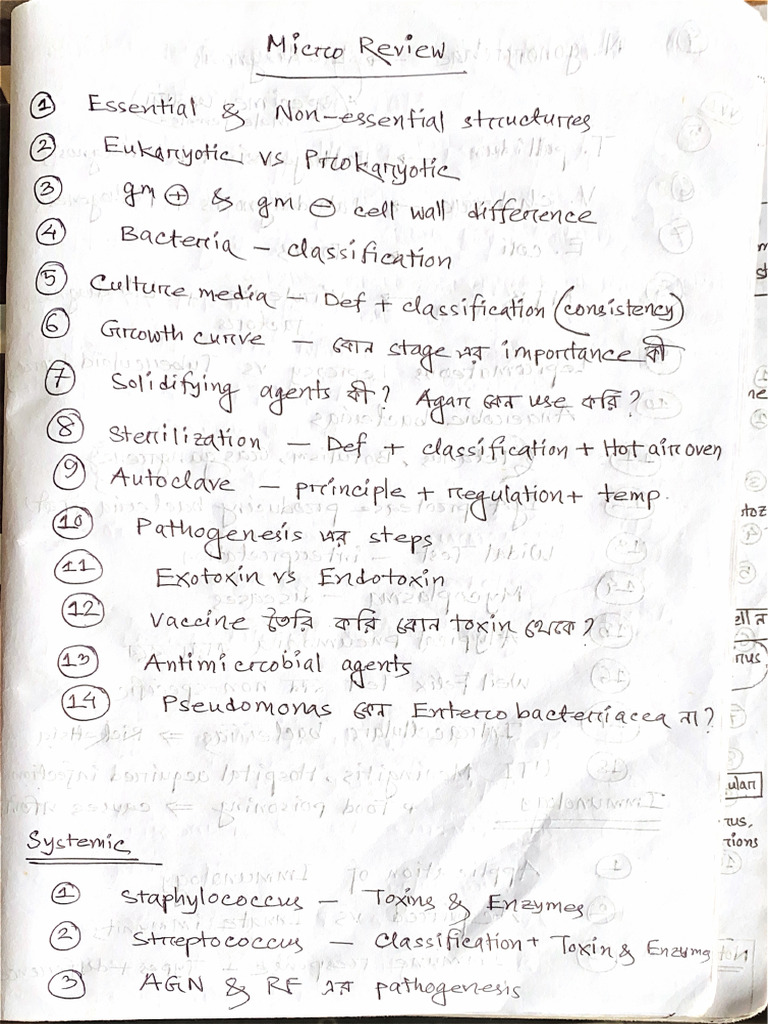 Micro Review
① Essential & Non-essential structures
② Eukaryotic vs Prokaryotic
③ gm ⊕ & gm ⊖ cell wall difference
④ Bacteria – classification
⑤ Culture media – Def + classification (consistency)
⑥ Growth curve – কোন stage এর importance কী
⑦ Solidifying agents কী? Agar কেন use করি?
⑧ Sterilization – Def + classification + Hot air oven
⑨ Autoclave – principle + regulation + temp.
⑩ Pathogenesis এর steps
⑪ Exotoxin vs Endotoxin
⑫ vaccine তৈরি করি কোন toxin থেকে?
⑬ Antimicrobial agents
⑭ Pseudomonas কেন Enterobacteriacea না?
Systemic
① Staphylococcus – Toxins & Enzymes
② Streptococcus – Classification + Toxin & Enzyme
③ AGN & RF এর pathogenesis